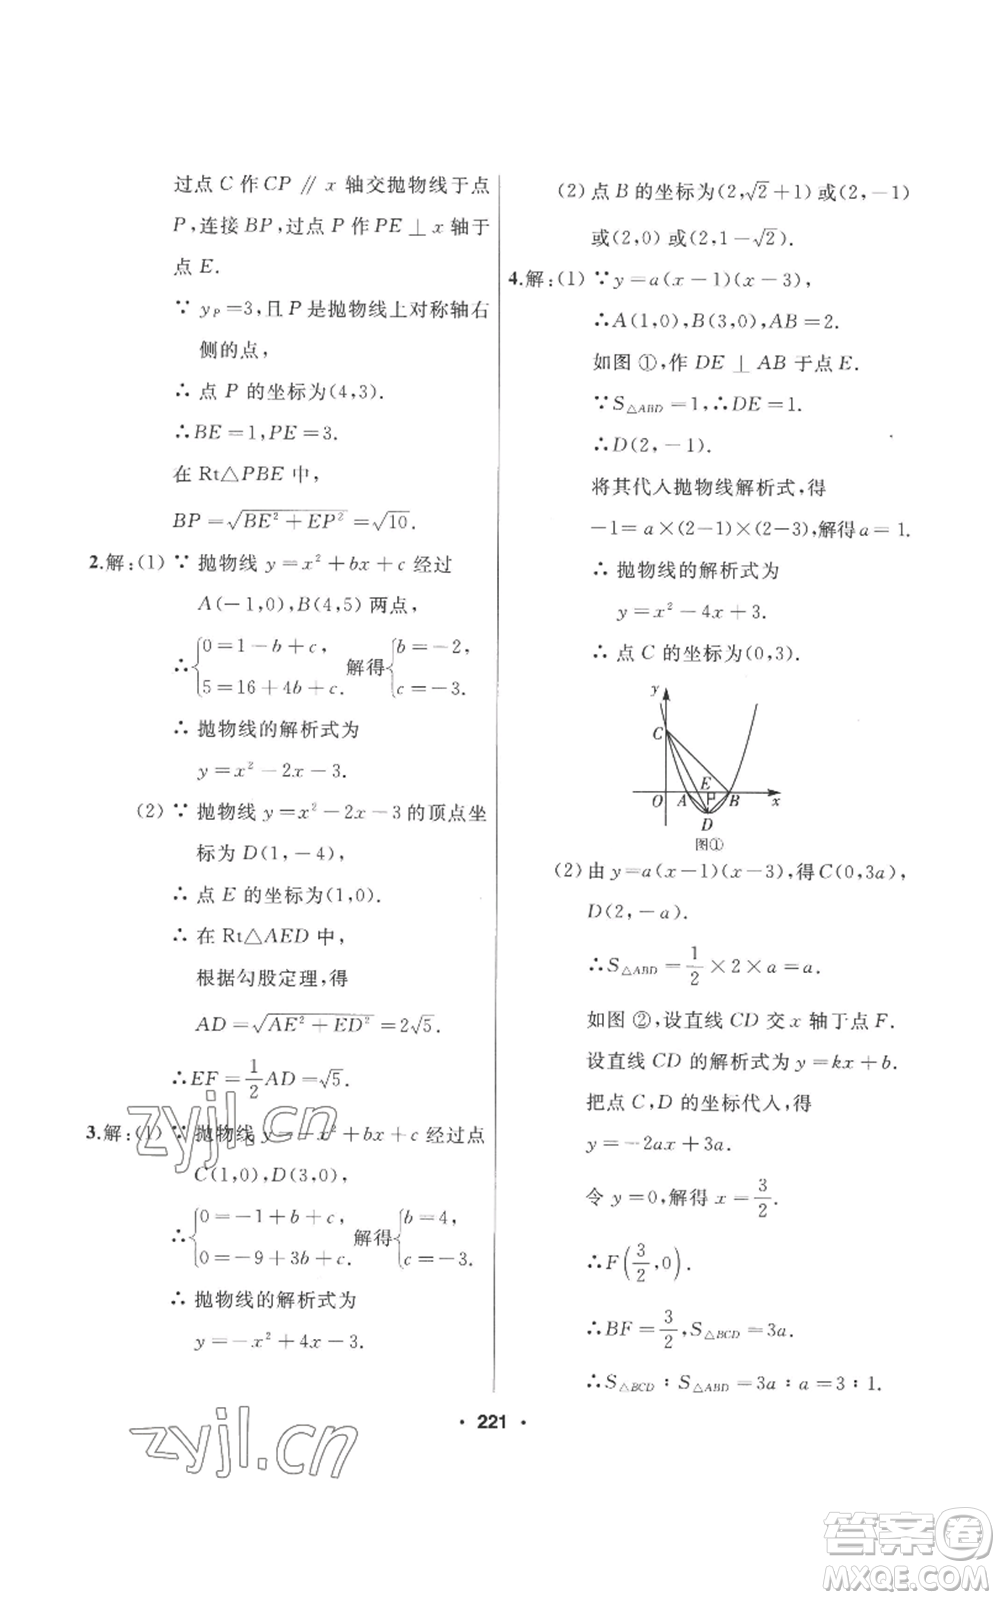 过点 C 作 CP ∥ x 轴交抛物线于点
P,连接 BP,过点 P 作 PE ⊥ x 轴于
点 E.
∵ yP=3,且 P 是抛物线上对称轴右
侧的点,
∴ 点 P 的坐标为(4,3).
∴BE=1,PE=3.
在 Rt△PBE 中,
BP=√(BE²+EP²)=√10.
2.解:(1) ∵ 抛物线 y=x²+bx+c 经过
A(-1,0),B(4,5) 两点,
∴{0=1-b+c, 5=16+4b+c. 解得{b=-2, c=-3.
∴ 抛物线的解析式为
y=x²-2x-3.
(2) ∵ 抛物线 y=x²-2x-3 的顶点坐
标为 D(1,-4),
∴ 点 E 的坐标为(1,0).
∴ 在 Rt△AED 中,
根据勾股定理,得
AD=√(AE²+ED²)=2√5.
∴EF=1/2AD=√5.
3.解:(1) ∵ 抛物线 y=-x²+bx+c 经过点
C(1,0),D(3,0),
∴{0=-1+b+c, 0=-9+3b+c. 解得{b=4, c=-3.
∴ 抛物线的解析式为
y=-x²+4x-3.
(2) 点 B 的坐标为(2,√2+1) 或(2,-1)
或(2,0) 或(2,1-√2).
4.解:(1) ∵y=a(x-1)(x-3),
∴A(1,0),B(3,0),AB=2.
如图 ①,作 DE ⊥ AB 于点 E.
∵S△ABD=1,∴DE=1.
∴D(2,-1).
将其代入抛物线解析式,得
-1=a×(2-1)×(2-3),解得 a=1.
∴ 抛物线的解析式为
y=x²-4x+3.
∴ 点 C 的坐标为(0,3).
y
C
E
O A B x
D
图①
(2) 由 y=a(x-1)(x-3),得 C(0,3a),
D(2,-a).
∴S△ABD=1/2×2×a=a.
如图 ②,设直线 CD 交 x 轴于点 F.
设直线 CD 的解析式为 y=kx+b.
把点 C,D 的坐标代入,得
y=-2ax+3a.
令 y=0,解得 x=3/2.
∴F(3/2,0).
∴BF=3/2,S△BCD=3a.
∴S△BCD∶S△ABD=3a∶a=3∶1.
• 221 •
zyjl.cn
zyjl.cn
答案卷
MXQE.COM